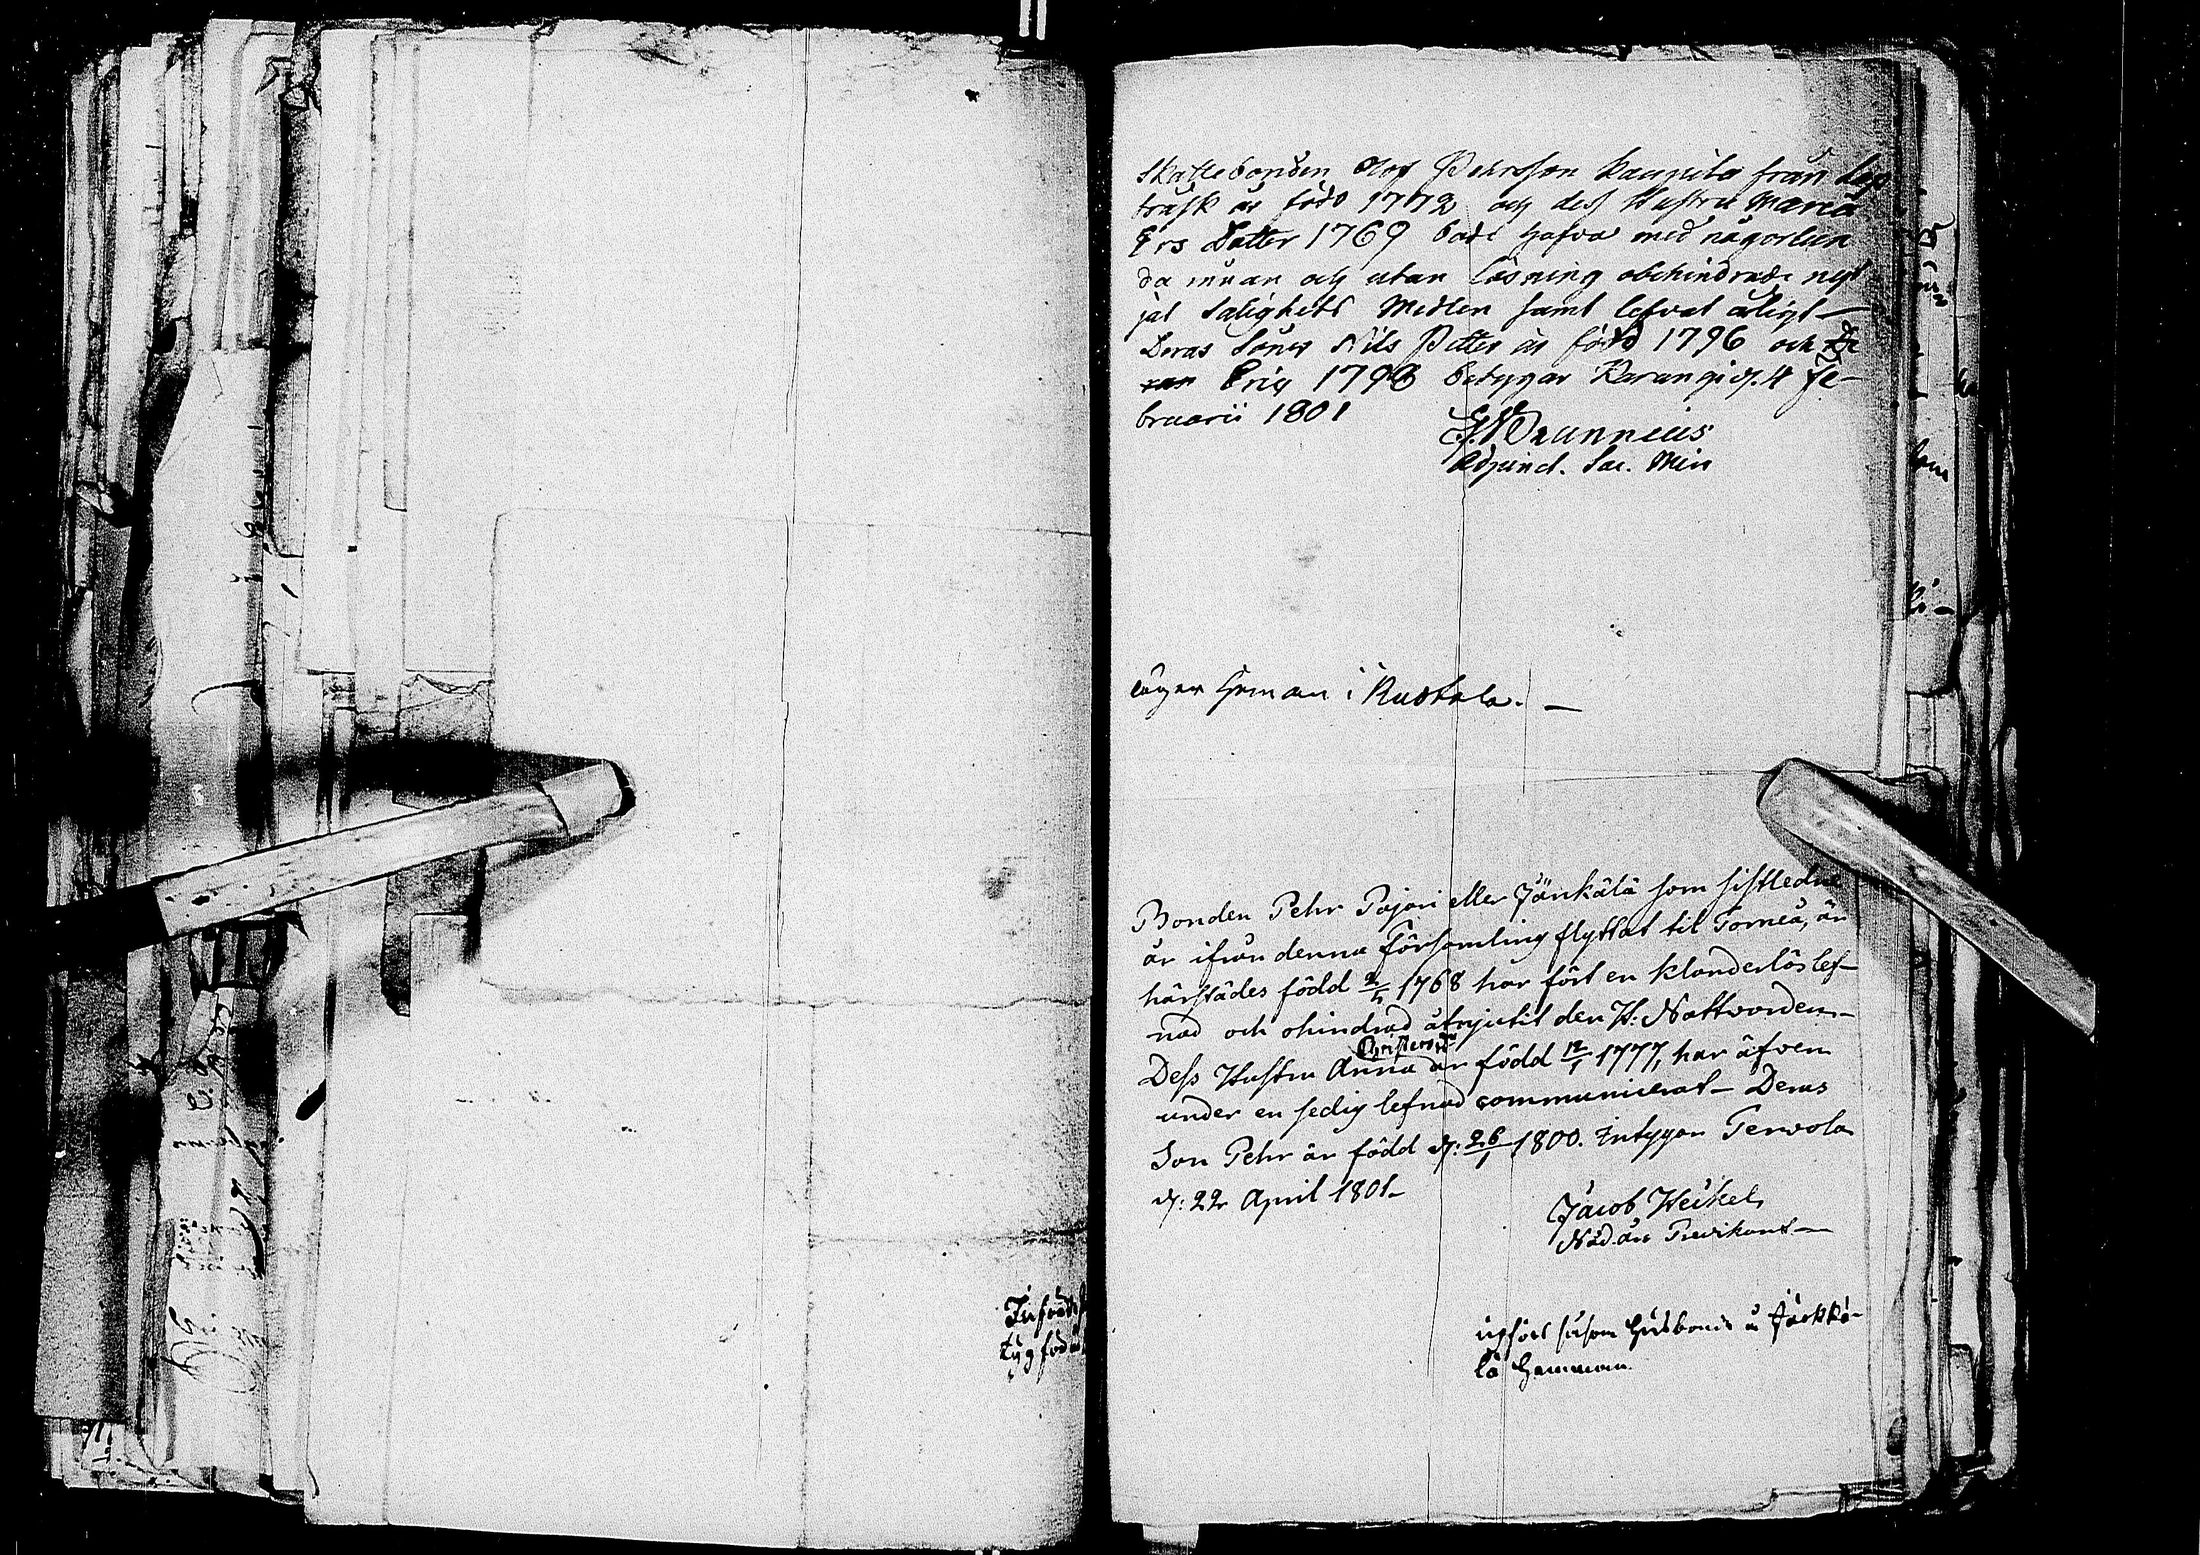 Skattebonden Olof Pehrsson Kaupila från Lap
träsk är född 1772 och dess Hustru Maria
Ers Datter 1769 både hafva med någorlun
da innan och utan läsning obehindrade nyt
jat Salighets Medlen samt lefvat ärligt –
Deras Söner Nils Petter är född 1796 och
Eric 1798 betygar Karungi d. 4 Fe-
bruarii 1801
Brunnius
Adjunct. Sac. Min
äger Heman i Kuobala. –
Bonden Pehr Pajari eller Jänkälä som sistledne
år ifrån denna Församling flyttat til Torneå, är
härstädes född 1768 har fört en klanderlös lef-
nad och ohindrad åtnjutit den H: Nattvarden –
Dess Hustru Anna Christersdr är född 12/1 1777, har äfven
under en sedig lefnad communicerat – Deras
Son Pehr är född d: 26/1 1800. Intygar Terwola
d: 22 April 1801 –
Jacob Heikel
Nåd. års Predikant –
upförd såsom Husbonde å
lä Hemman.
tyg föd